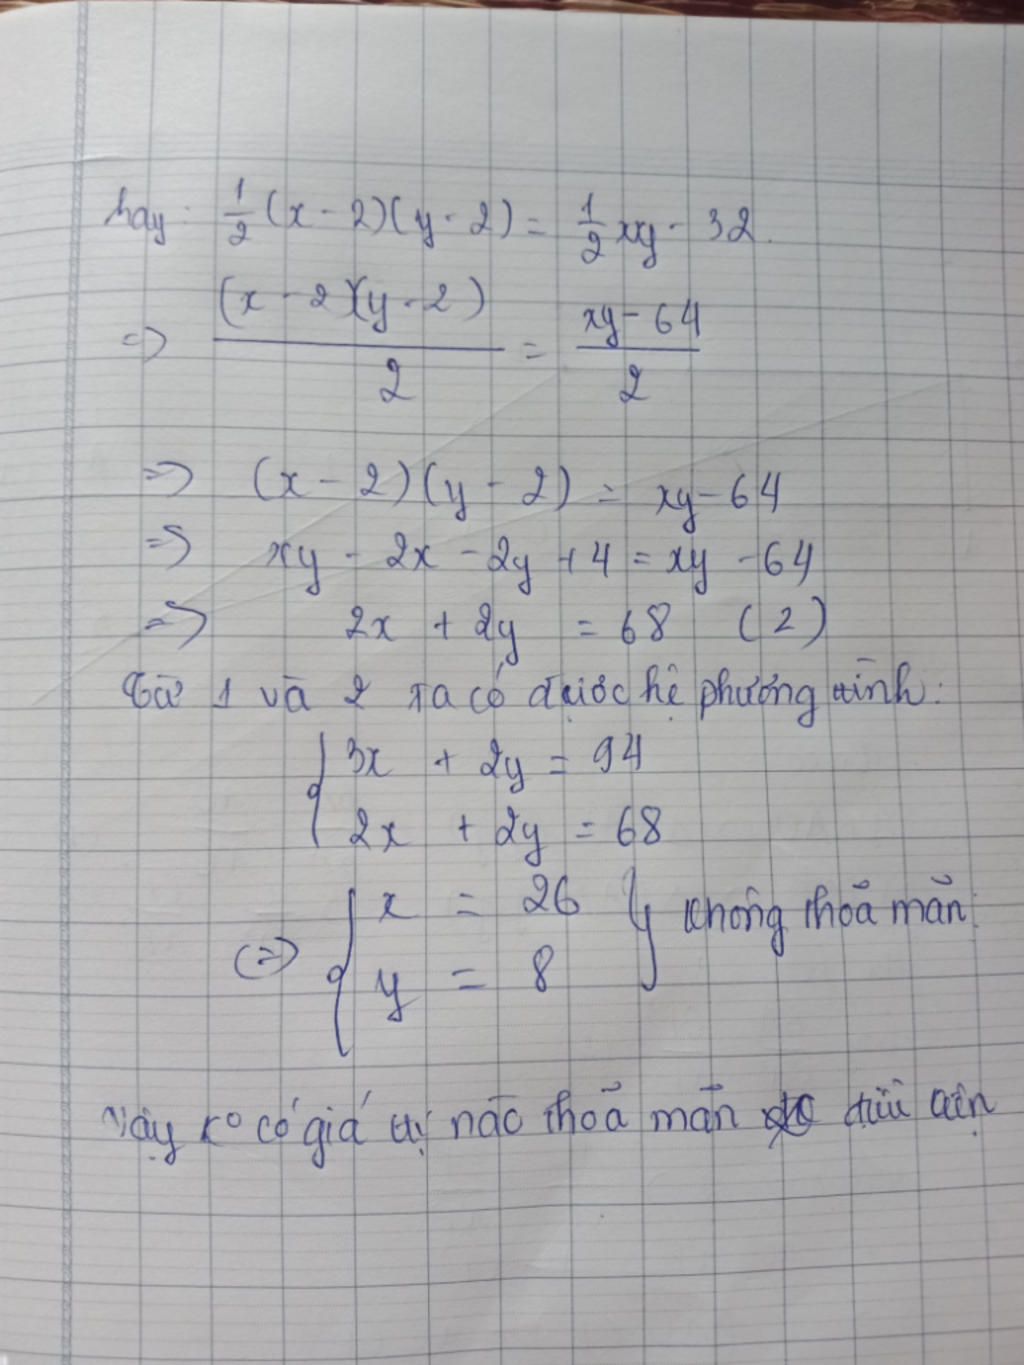 hay: 1/2 (x - 2)(y - 2) = 1/2 xy - 32.
=> (x - 2)(y - 2) / 2 = xy - 64 / 2
=> (x - 2)(y - 2) = xy - 64
=> xy - 2x - 2y + 4 = xy - 64
=> 2x + 2y = 68 (2)
Từ 1 và 2 ta có được hệ phương trình:
{ 3x + 2y = 94
2x + 2y = 68
(=>) { x = 26 } không thoã mãn
y = 8
Vậy k° có giá trị nào thoã mãn điều kiện